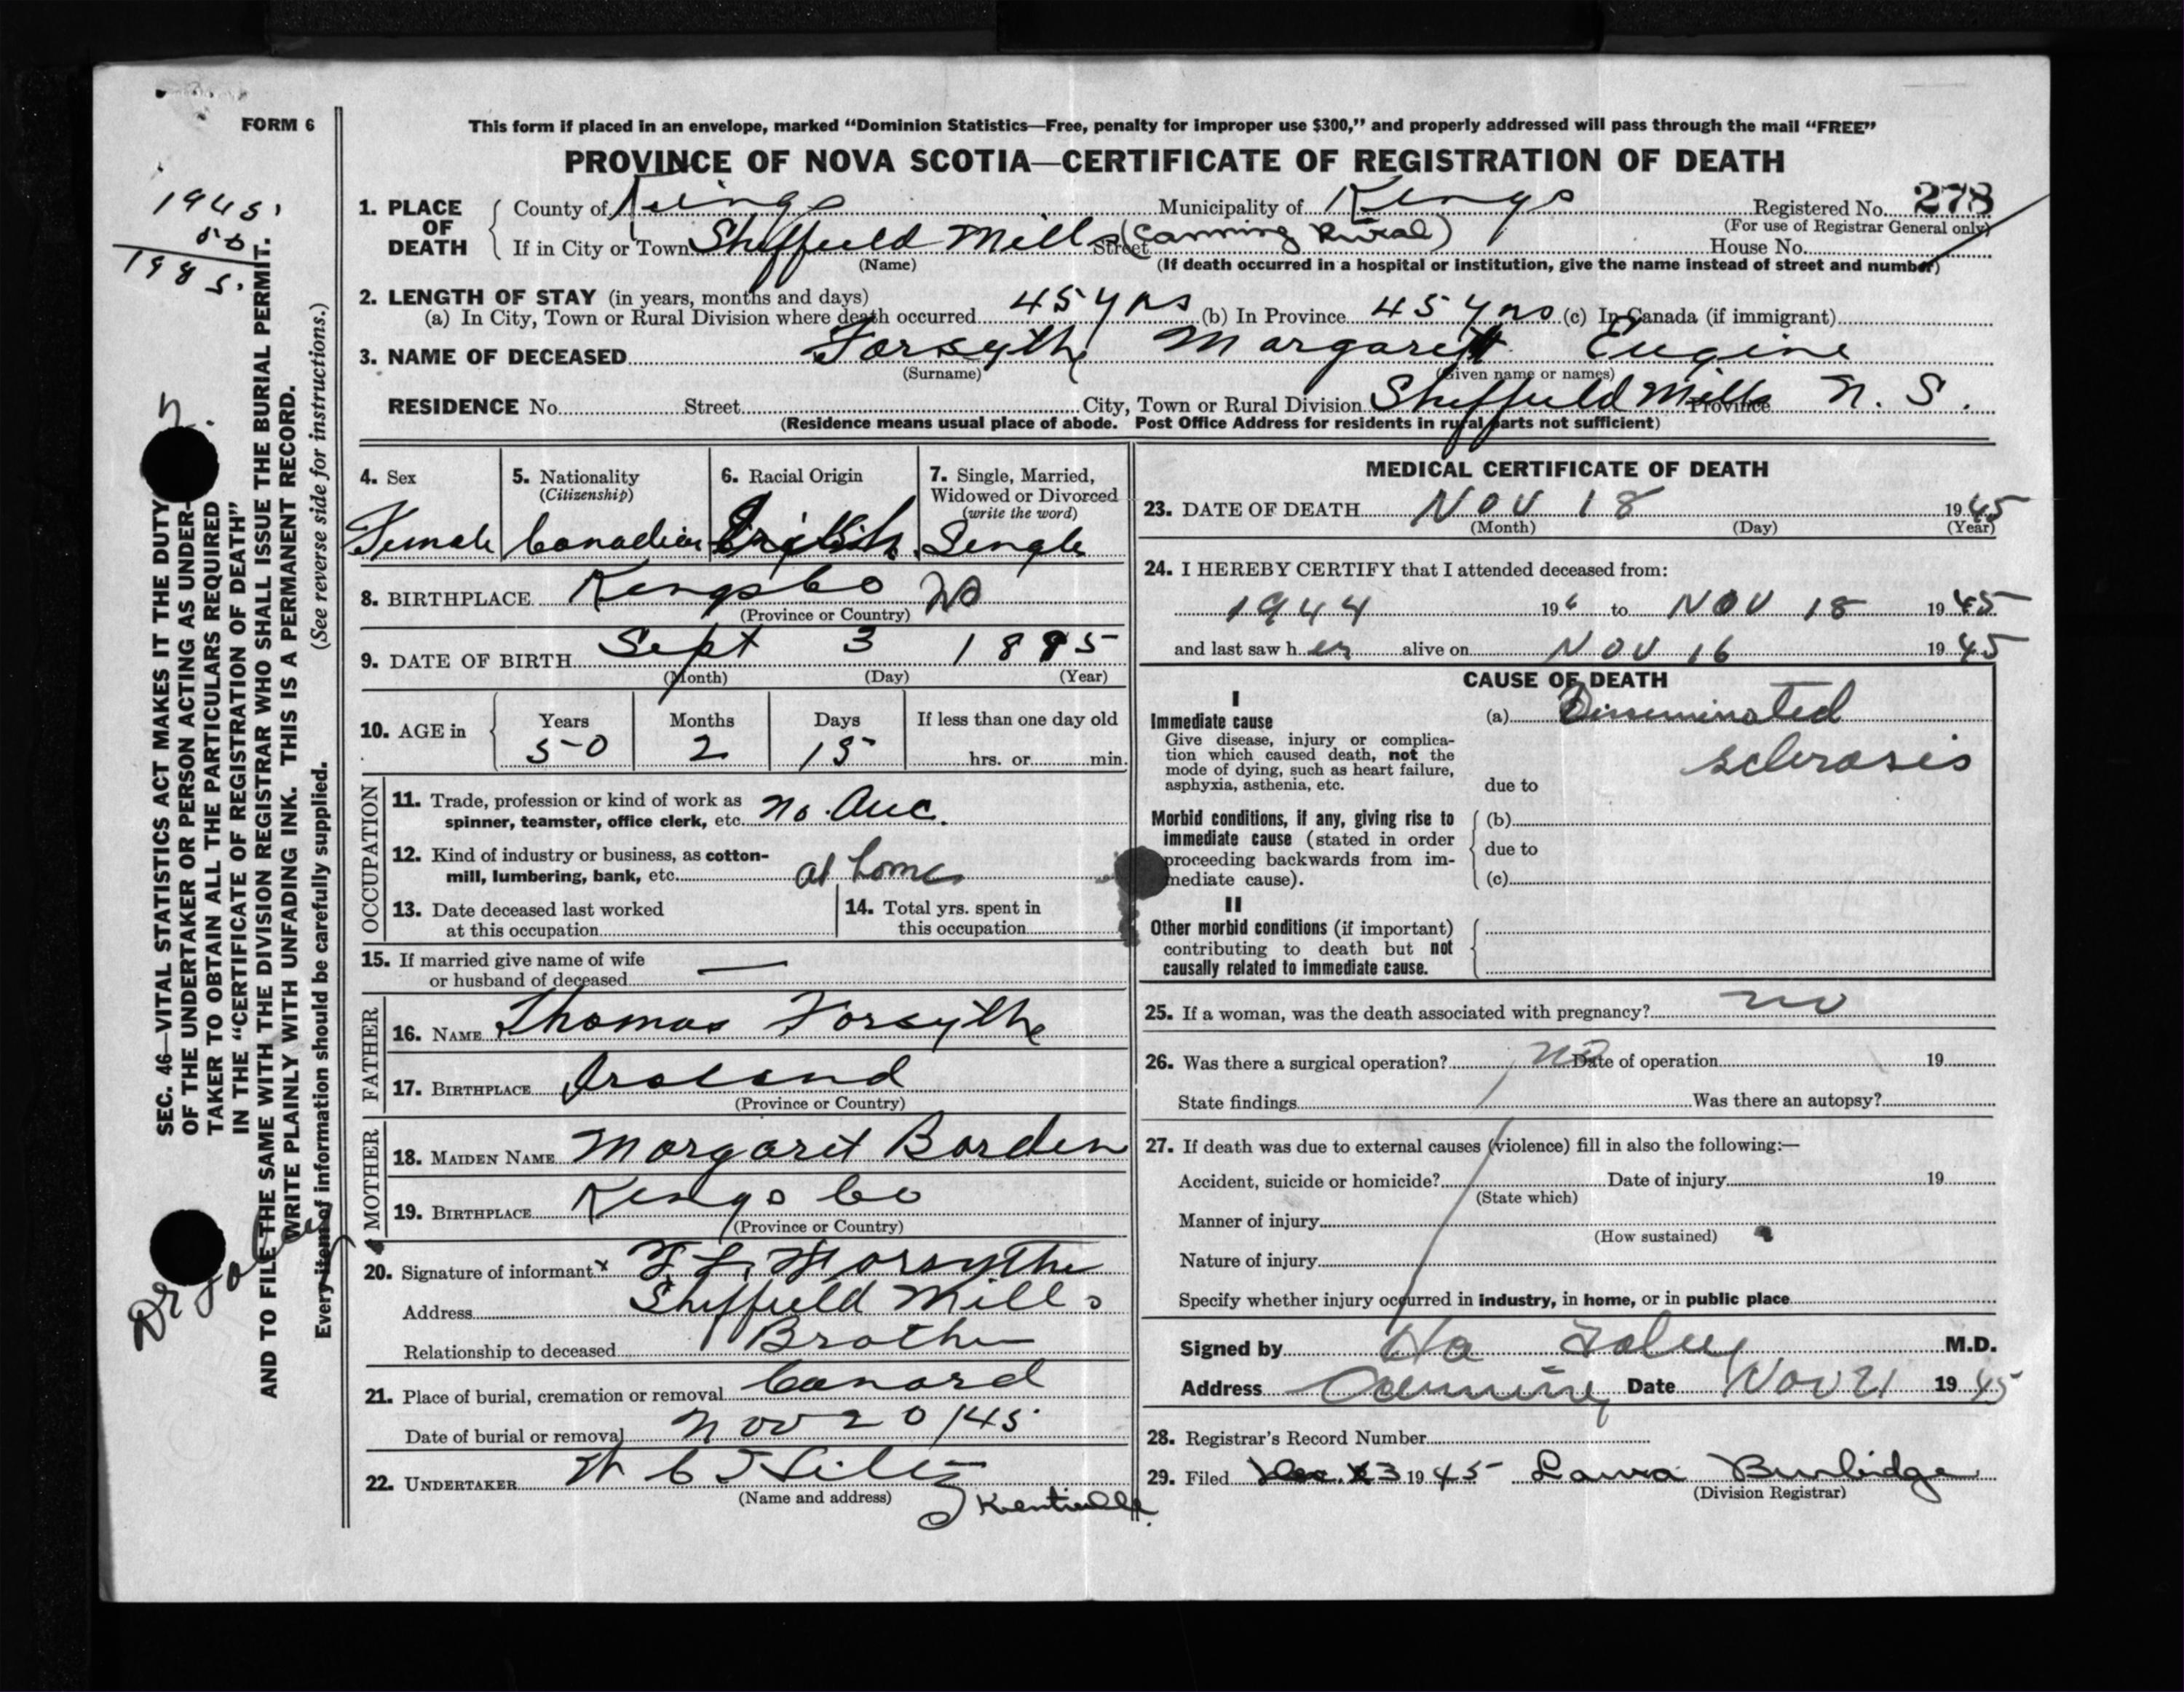 FORM 6
This form if placed in an envelope, marked “Dominion Statistics—Free, penalty for improper use $300,” and properly addressed will pass through the mail “FREE”
PROVINCE OF NOVA SCOTIA—CERTIFICATE OF REGISTRATION OF DEATH
1945
50
1985.
1. PLACE OF DEATH County of Kings Municipality of Kings Registered No. 278
(For use of Registrar General only)
If in City or Town Sheffield Mills (Canning Rural) Street House No.
(Name) (If death occurred in a hospital or institution, give the name instead of street and number)
2. LENGTH OF STAY (in years, months and days)
(a) In City, Town or Rural Division where death occurred 45 yrs (b) In Province 45 yrs (c) In Canada (if immigrant)
3. NAME OF DECEASED Forsythe Margaret Eugine
(Surname) (Given name or names)
RESIDENCE No. Street City, Town or Rural Division Sheffield Mills Province N. S.
(Residence means usual place of abode. Post Office Address for residents in rural parts not sufficient)
4. Sex 5. Nationality (Citizenship) 6. Racial Origin 7. Single, Married, Widowed or Divorced (write the word)
Female Canadian Single
8. BIRTHPLACE Kings Co NS
(Province or Country)
9. DATE OF BIRTH Sept 3 1895
(Month) (Day) (Year)
10. AGE in Years Months Days If less than one day old
50 2 15 hrs. or min.
OCCUPATION
11. Trade, profession or kind of work as spinner, teamster, office clerk, etc. No.
12. Kind of industry or business, as cotton-mill, lumbering, bank, etc. at home
13. Date deceased last worked at this occupation
14. Total yrs. spent in this occupation
15. If married give name of wife or husband of deceased —
FATHER
16. NAME Thomas Forsythe
17. BIRTHPLACE Ireland
(Province or Country)
MOTHER
18. MAIDEN NAME Margaret Borden
19. BIRTHPLACE Kings Co
(Province or Country)
20. Signature of informant x Forsythe
Address Sheffield Mills
Relationship to deceased Brother
21. Place of burial, cremation or removal Canard
Date of burial or removal Nov 20/45
22. UNDERTAKER W C Hiltz
(Name and address) Kentville.
MEDICAL CERTIFICATE OF DEATH
23. DATE OF DEATH Nov 18 1945
(Month) (Day) (Year)
24. I HEREBY CERTIFY that I attended deceased from:
1944 19 to Nov 18 1945
and last saw her alive on Nov 16 1945
CAUSE OF DEATH
I
Immediate cause
Give disease, injury or complication which caused death, not the mode of dying, such as heart failure, asphyxia, asthenia, etc.
(a) Disseminated
sclerosis
due to
Morbid conditions, if any, giving rise to immediate cause (stated in order proceeding backwards from immediate cause).
(b)
due to
(c)
II
Other morbid conditions (if important) contributing to death but not causally related to immediate cause.
25. If a woman, was the death associated with pregnancy? no
26. Was there a surgical operation? no Date of operation 19
State findings Was there an autopsy?
27. If death was due to external causes (violence) fill in also the following:—
Accident, suicide or homicide? Date of injury 19
(State which)
Manner of injury
(How sustained)
Nature of injury
Specify whether injury occurred in industry, in home, or in public place
Signed by M.D.
Address Canning Date Nov 21 1945
28. Registrar's Record Number
29. Filed 1945 Laura Burbidge
(Division Registrar)
SEC. 46—VITAL STATISTICS ACT MAKES IT THE DUTY
OF THE UNDERTAKER OR PERSON ACTING AS UNDER-
TAKER TO OBTAIN ALL THE PARTICULARS REQUIRED
IN THE “CERTIFICATE OF REGISTRATION OF DEATH”
AND TO FILE THE SAME WITH THE DIVISION REGISTRAR WHO SHALL ISSUE THE BURIAL PERMIT.
WRITE PLAINLY WITH UNFADING INK. THIS IS A PERMANENT RECORD.
Every item of information should be carefully supplied. (See reverse side for instructions.)
Dr